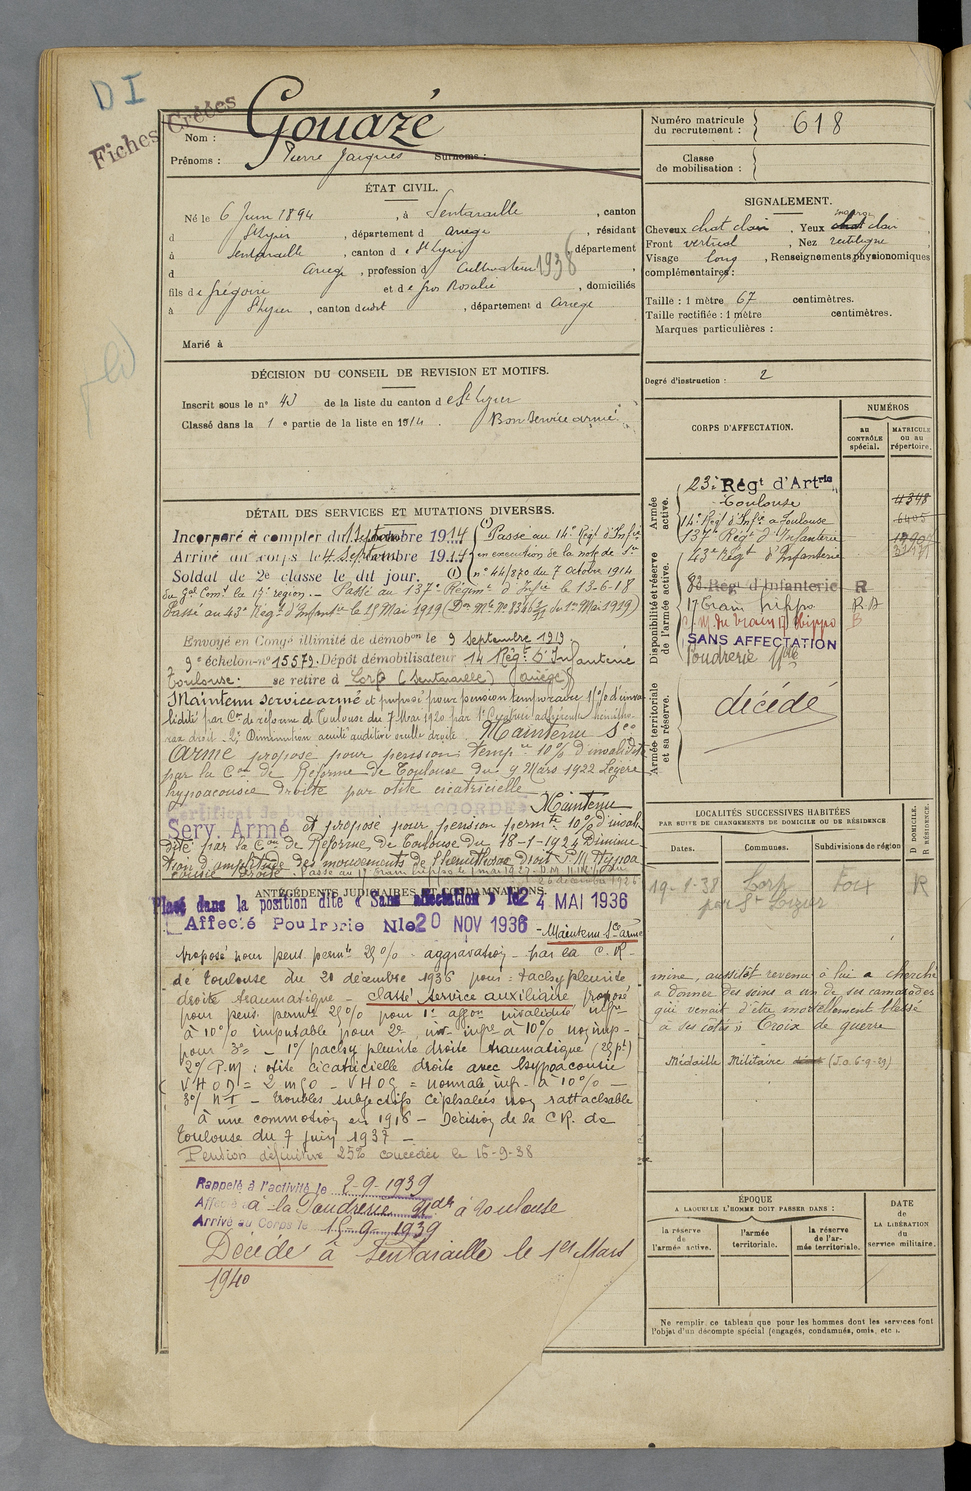 D I
Fiches Créées
Nom : Gouazé
Prénoms : Pierre Jacques Surnoms :
ÉTAT CIVIL.
Né le 6 Juin 1894, à Sentaraille, canton
d St Lizier, département d Ariège, résidant
à Sentaraille, canton de St Lizier, département
d Ariège, profession d Cultivateur
1938
fils de Grégoire et de Gros Rosalie, domiciliés
à St Lizier, canton dudit, département d Ariège
Marié à
DÉCISION DU CONSEIL DE REVISION ET MOTIFS.
Inscrit sous le n° 43 de la liste du canton de St Lizier
Classé dans la 1e partie de la liste en 1914. Bon Service armé.
DÉTAIL DES SERVICES ET MUTATIONS DIVERSES.
Incorporé à compter du 1 Septembre 1914
Arrivé au corps le 4 Septembre 1914
Soldat de 2e classe le dit jour. (1)
(1) Passé au 14e Régt d'Infie
en exécution de la note de Sce
n° 44/870 du 7 octobre 1914
du Gal Comt la 17e région. — Passé au 137e Régimt d'Infie le 13-6-18
Passé au 43e Régt d'Infantie le 15 Mai 1919 (Don Mle N° 8346 du 1er Mai 1919)
Envoyé en Congé illimité de démobon le 9 Septembre 1919.
9e échelon n° 15579. Dépôt démobilisateur 14 Régt d'Infanterie
Toulouse : se retire à Lorp (Sentaraille) (Ariège)
Maintenu service armé et proposé pour pension temporaire 10% d'inva
lidité par Con de réforme de Toulouse du 7 Mai 1920 par 1° Cicatrice adhérente hémitho
rax droit. 2° Diminution acuité auditive oreille droite. Maintenu Sce
armé proposé pour pension tempre 10% d'invalidité
par la Con de Réforme de Toulouse du 9 Mars 1922 Légère
hypoacousie droite par otite cicatricielle
Maintenu
Serv. Armé et proposé pour pension permte 10% d'invali
dité par la Con de Réforme de Toulouse du 18-1-1924 Diminu
tion d'amplitude des mouvements de l'hémithorax droit. P.M Hypoa
cousie droite. Passé au 17 Train hippo le 1 mai 1927.
26 décembre 1926
ANTÉCÉDENTS JUDICIAIRES ET CONDAMNATIONS.
Placé dans la position dite « Sans affectation » le 24 MAI 1936
Affecté Poudrerie Nle 20 NOV 1936 - Maintenu Sce armé
Proposé pour pens. permte 25% - aggravation - par la C.R.
de Toulouse du 20 décembre 1936 pour : Pachypleurite
droite traumatique — classé service auxiliaire, proposé
pour pens. permte 25% pour 1e affon invalidité infre
à 10% imputable pour 2e inv. infre à 10% no imp-
pour 3e — 1°/ pachy pleurite droite traumatique (25%)
2°/ P.M : otite cicatricielle droite avec hypoacousie
V H O D = 2 m50 - V H O G = normale inf. à 10% —
3°/ N I - troubles subjectifs céphalées non rattachable
à une commotion en 1916 - Décision de la C.R. de
Toulouse du 7 Juin 1937 —
Pension définitive 25% concédée le 15-9-38
Rappelé à l'activité le 2-9-1939
Affecté à la Poudrerie Nale à Toulouse
Arrivé au Corps le 15-9-1939
Décédé à Sentaraille le 1er Mars
1940
Numéro matricule du recrutement : 618
Classe de mobilisation :
SIGNALEMENT.
Cheveux chat clair. Yeux marron clair
Front vertical, Nez rectiligne
Visage long, Renseignements physionomiques
complémentaires :
Taille : 1 mètre 67 centimètres.
Taille rectifiée : 1 mètre centimètres.
Marques particulières :
Degré d'instruction : 2
CORPS D'AFFECTATION.
NUMÉROS
AU CONTRÔLE spécial.
MATRICULE ou au répertoire.
Armée active.
23e Régt d'Artrie
Toulouse 4348
14e Régt d'Infie à Toulouse 6405
137e Régt d'Infanterie
43e Régt d'Infanterie
Disponibilité et réserve de l'armée active.
83 Rég d'Infanterie R
17 Train hippo R.D
C.M. du Train 17 Hippo B
SANS AFFECTATION
Poudrerie Nale
Armée territoriale et sa réserve.
décédé
LOCALITÉS SUCCESSIVES HABITÉES
PAR SUITE DE CHANGEMENTS DE DOMICILE OU DE RÉSIDENCE
Dates. Communes. Subdivisions de région D DOMICILE. R RÉSIDENCE.
19-8-38 Lorp Foix R
par St Lizier
mine, aussitôt revenu à lui a cherché
a donner des soins a un de ses camarades
qui venait d'être mortellement blessé
à ses côtés » Croix de guerre
Médaille Militaire (J.O. 6-9-29)
ÉPOQUE
A LAQUELLE L'HOMME DOIT PASSER DANS :
la réserve de l'armée active.
l'armée territoriale.
la réserve de l'armée territoriale.
DATE de LA LIBÉRATION du service militaire.
Ne remplir ce tableau que pour les hommes dont les services font
l'objet d'un décompte spécial (engagés, condamnés, omis, etc.).